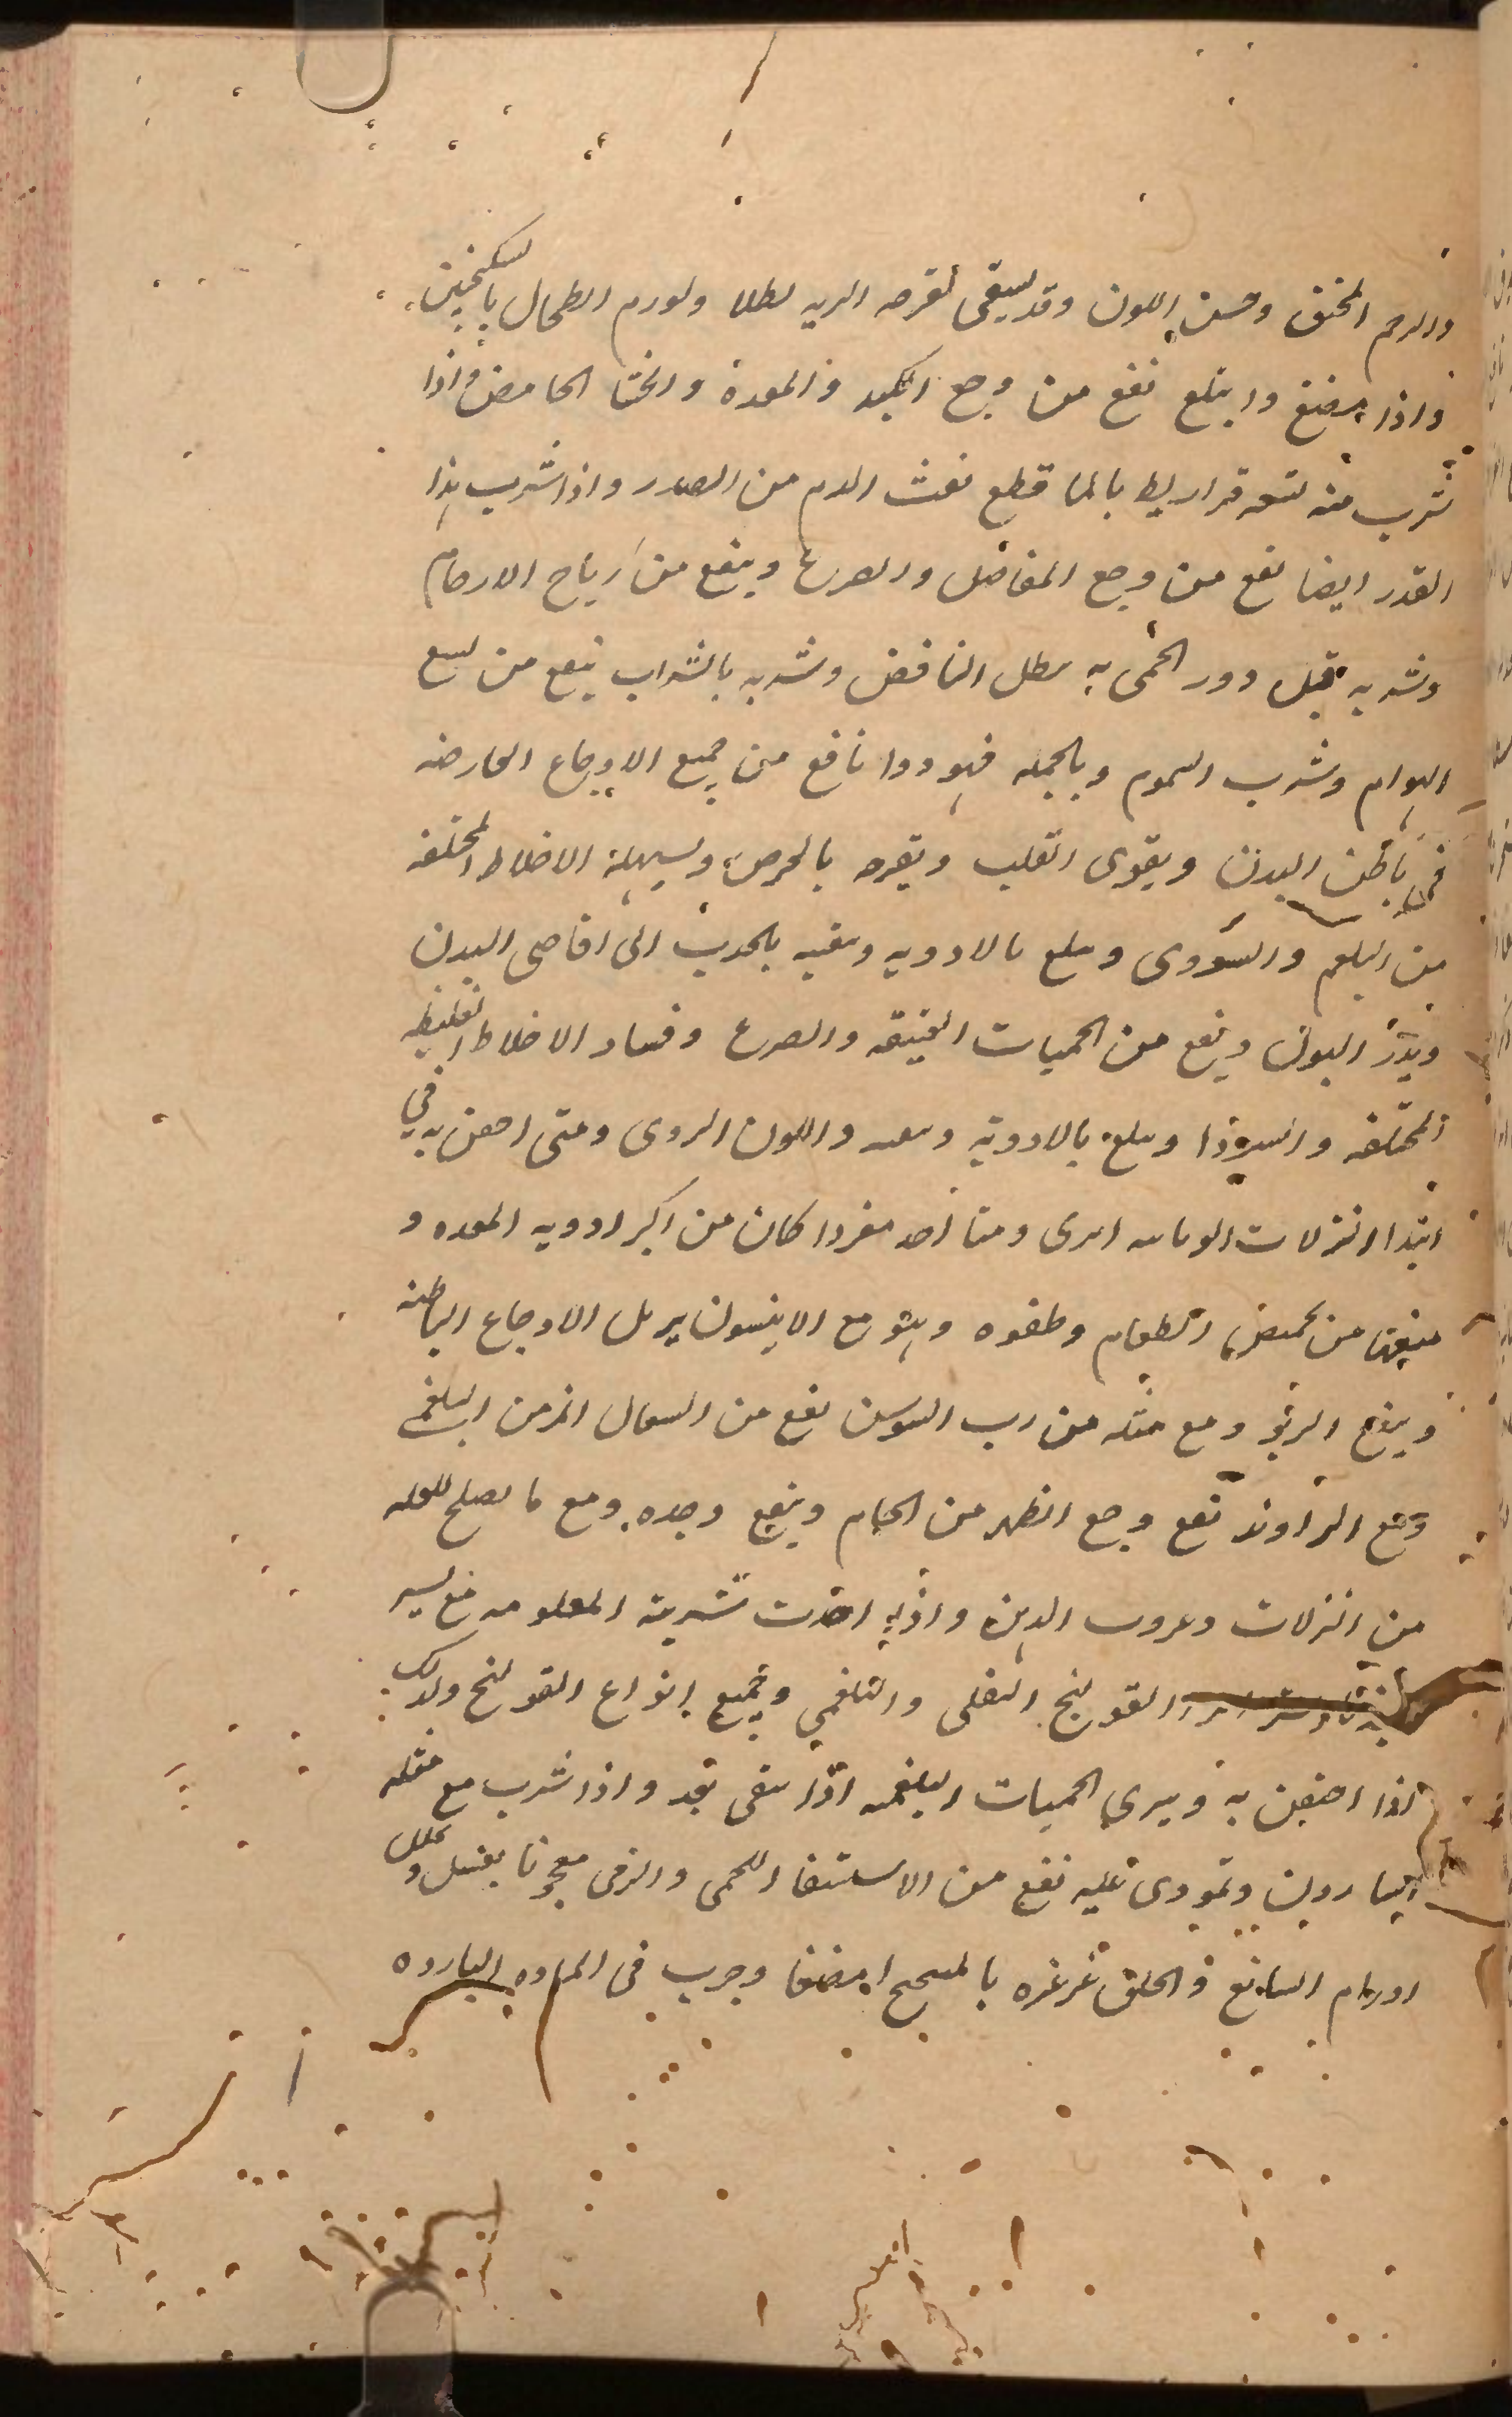 والرحم المخنق وحسن اللون وقد يسقى لقرحه الريه بطلا ولورم الطحال بالسكنجبين
واذا مضغ وابتلع نفع من وجع الكبد والمعدة والجشا الحامض واذا
شرب منه تسعه قراريط بالما قطع نفث الدم من الصدر واذا شرب هذا
القدر ايضا نفع من وجع المفاصل والصرع وينفع من رياح الارحام
وشربه قبل دور الحمى به يبطل النافض وشربه بالشراب ينفع من لسع
الهوام وشرب السموم وبالجمله فهو دوا نافع من جميع الاوجاع العارضه
فى باطن البدن ويقوى القلب ويفرحه ويسهله الاخلاط المختلفه
من البلغم والسودى ويبلغ بالادويه وينقيه بالجذب الى اقاصى البدن
ويدر البول وينفع من الحميات العتيقه والصرع وفساد الاخلاط الغليظه
المختلفه والسودا ويبلغ بالادويه واللون الردى ومتى احقن به في
ابتدا النزلات ابرى ومتا اخذ مفردا كان من اكبر ادويه المعده و
منعها من تحميض الطعام وطفوه وهو مع الانيسون يزيل الاوجاع الباطنه
وينفع الربو ومع مثله من رب السوس نفع من السعال المزمن البلغمى
ومع الراوند نفع وجع الظهر من الخام وينفع وحده ومع ما يصلح للعله
من النزلات واذا اخذت شربته المعلومه مع يسير
القولنج الثفلى والبلغمي وجميع انواع القولنج وكذلك
اذا احتقن به ويبرى الحميات البلغميه اذا سقى بعد واذا شرب مع مثله
اسارون وتمودى عليه نفع من الاستسقا اللحمى والزقى معجونا بعسل ويحلل
اورام السانع في الحلق غرغره بالمسحج ا مضغا وجرب فى الماده البارده